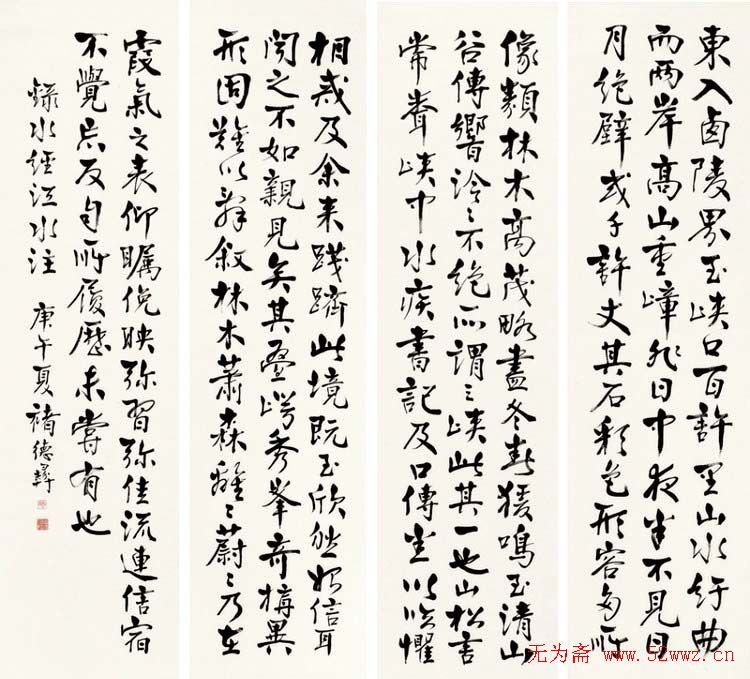 東入西陵界至峽口百許里山水紆曲
而兩岸高山重嶂非日中夜半不見日
月絕壁或千許丈其石彩色形容多所
像類林木高茂略盡冬春猨鳴至清山
谷傳響泠〻不絕所謂三峽此其一也山松言
常聞峽中水疾書記及口傳悉以臨懼
相戒及余來踐躋此境既至欣然始信耳
聞之不如親見矣其疊崿秀峯奇構異
形固難以辭敘林木蕭森離〻蔚〻乃在
霞氣之表仰矚俛映弥習弥佳流連信宿
不覺忘反自所履歷未嘗有也
錄水經江水注 庚午夏褚德彝
无为斋 www.52wwz.cn